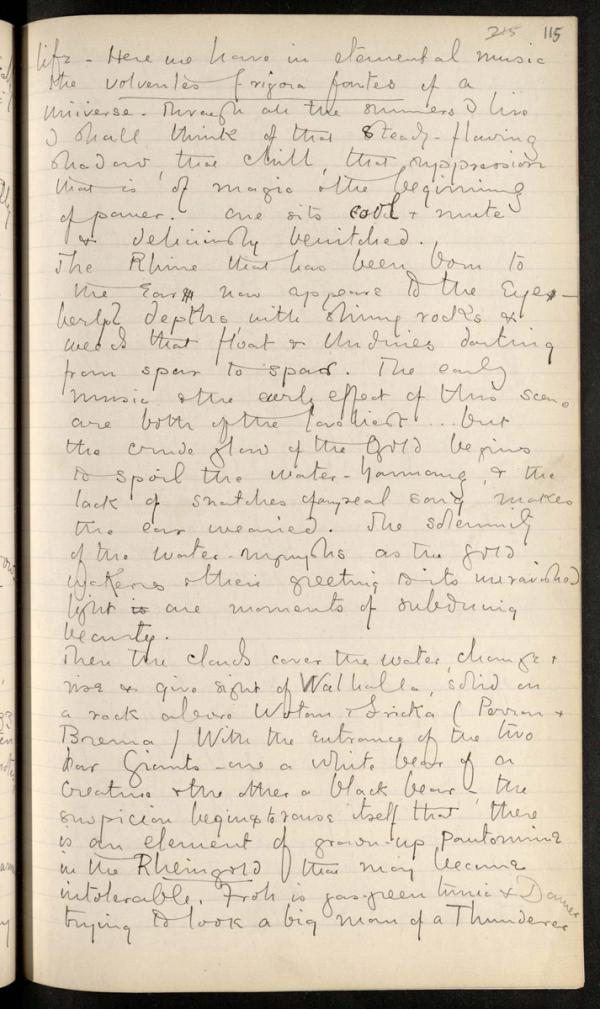 215 115
life - Here we have in elemental music
the volventes frigora fontes of a
universe. Through all the summers I live
I shall think of that steady-flowing
shadow, that chill, that suppression
that is of magic & the beginning
of power. One sits cool & mute
& deliciously bewitched.
The Rhine that has been born to
the Ear now appears to the Eyes -
depths with shiny rocks &
weeds that float & Undines darting
from spar to spar. The early
music & the early effect of this scene
are both of the loveliest... but
the crude glow of the Gold begins
to spoil the water-harmony, & the
lack of snatches of any real song makes
the ear wearied. The solemnity
of the water-nymphs as the gold
wakens & their greeting to its unravished
light is are moments of subduing
beauty.
Then the clouds cover the water, change &
rise & give sight of Walhalla, solid on
a rock above Wotan & Fricka (Perron &
Brema) With the entrance of the two
bear Giants - one a white bear of a
creature & the other a black bear - the
suspicion begins to rouse itself that there
is an element of grown-up Pantomime
in the Rheingold that may become
intolerable. Froh is gas-green tunic & Donner
trying to look a big man of a Thunderer